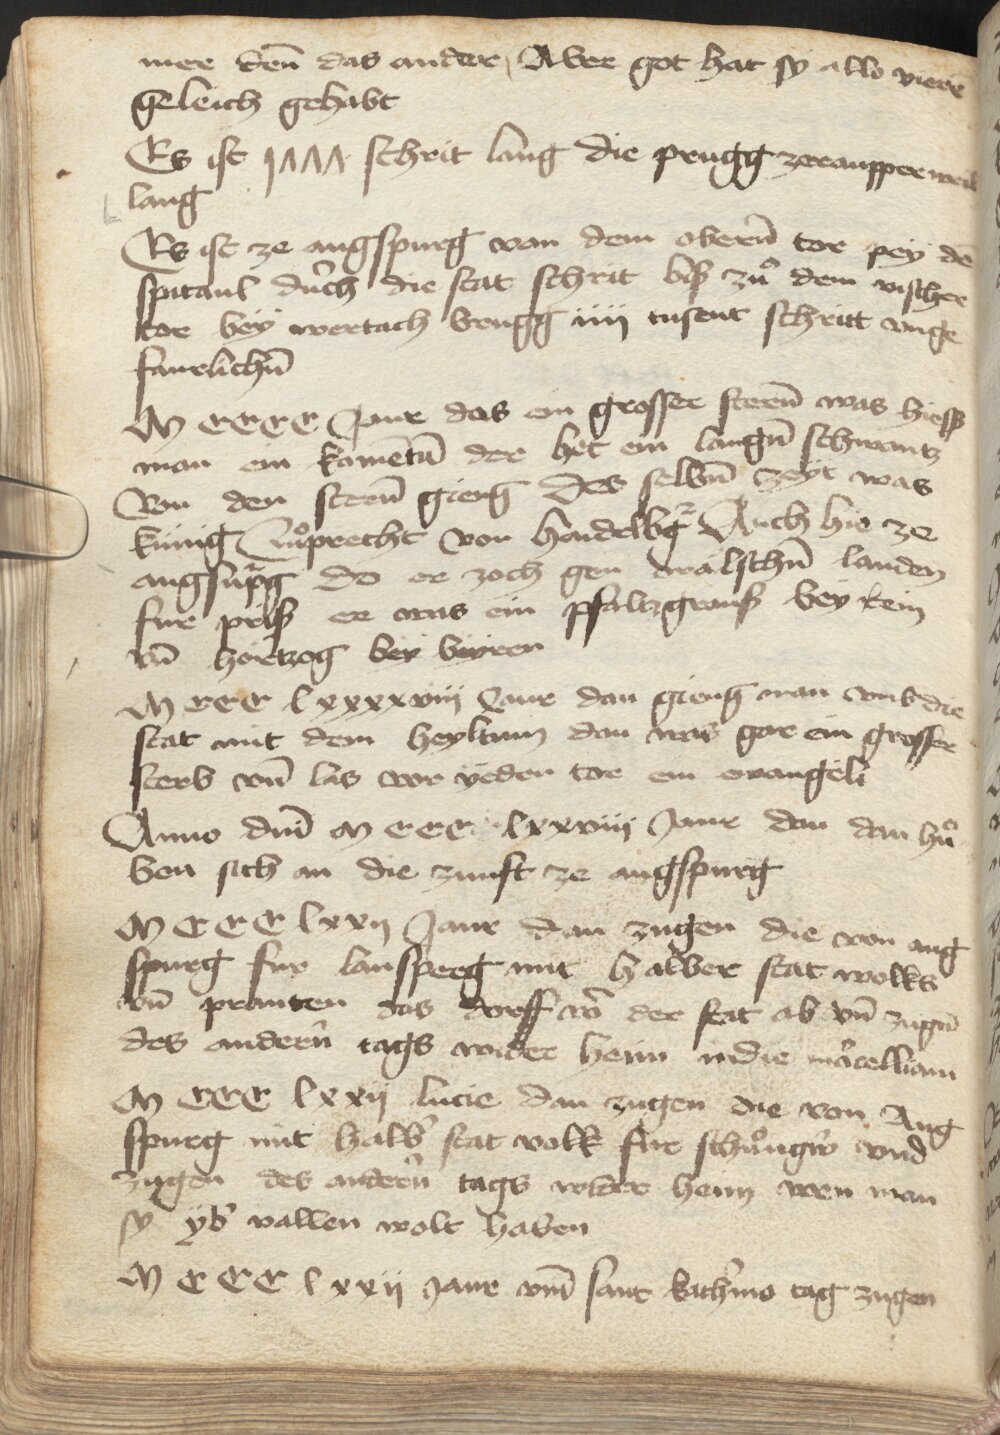 mer den̄ das ander Aber got hat sy allo viere
geleich gehabt
Es ist 1ΛΛΛ schrit lang die prugg ze raupperweil
lang
Es ist ze augspurg von dem obern̄ tor pey dē
spitaul durch die stat schrit biß zů dem vischer
tor bey wertach brugg iiii tusent schritt unge
faurlichn̄
M CCCC Jaur das ein grosser stern̄ was hieß
man ein kometn̄ der het ein langn̄ schwantz
Von den stern̄ gieng Des selbn̄ Zeyt was
künig Růprecht von haidelbg Auch hie ze
augspurg do er zoch gen wälschn̄ landen
fur priß er was ein pfaltzgrauf bey Rein
vn̄ hörtzog bey beyren
M CCC lxxxxviii Jaur dau gieng man umb die
stat mit dem heyltum dau was gar ein grosser
sterb vn̄ las vor yeden tor ein ewangeli
Anno dni M CCC lxxviii Jaur dau dau hů
ben sich an die zunft ze augspurg
M CCC lxxii Jaur dau zugen die von aug
spurg fur lansperg mit halber stat volks
vn̄ pranten das dorff vor der stat ab vn̄ zugn̄
des andern̄ tags wider heim indie marcelliani
M CCC lxxii lucie dau zugen die von Aug
spurg mit halb stat volk fur schongw und
zugen des andern̄ tags wider heim wen man
sy yb vallen wolt haben
M CCC lxxii jaur vm̄ sant kathrino tag zugen